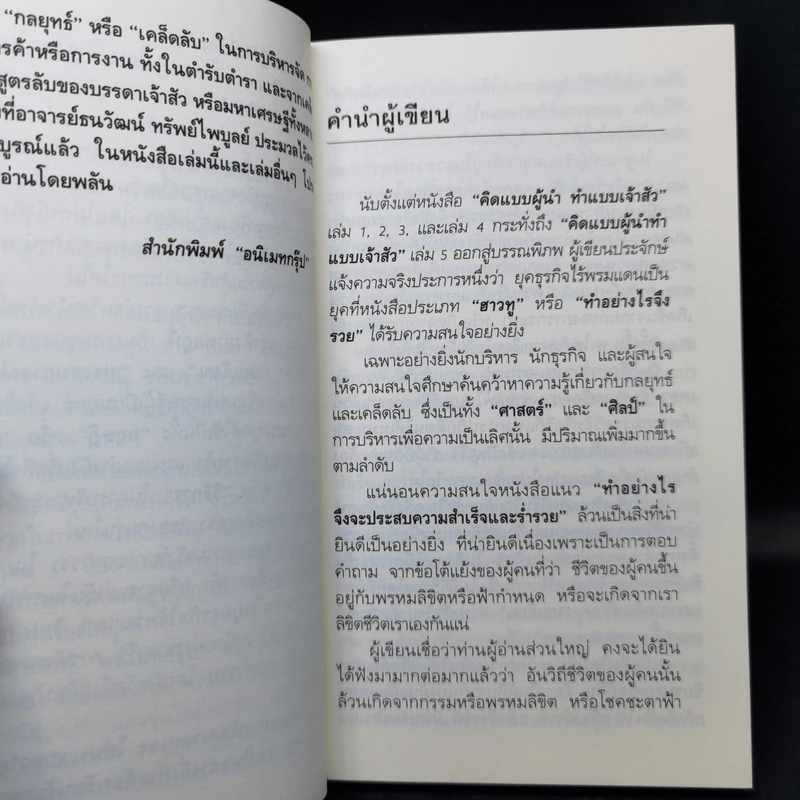 “กลยุทธ์” หรือ “เคล็ดลับ” ในการบริหารจัด
รค้าหรือการงาน ทั้งในตำรับตำรา และจาก
สูตรลับของบรรดาเจ้าสัว หรือมหาเศรษฐีทั้งหลาย
ที่อาจารย์ธนวัฒน์ ทรัพย์ไพบูลย์ ประมวลไว้
บูรณ์แล้ว ในหนังสือเล่มนี้และเล่มอื่นๆ
อ่านโดยพลัน
สำนักพิมพ์ “อนิเมทกรุ๊ป”
คำนำผู้เขียน
นับตั้งแต่หนังสือ “คิดแบบผู้นำ ทำแบบเจ้าสัว”
เล่ม 1, 2, 3, และเล่ม 4 กระทั่งถึง “คิดแบบผู้นำทำ
แบบเจ้าสัว” เล่ม 5 ออกสู่บรรณพิภพ ผู้เขียนประจักษ์
แจ้งความจริงประการหนึ่งว่า ยุคธุรกิจไร้พรมแดนเป็น
ยุคที่หนังสือประเภท “ฮาวทู” หรือ “ทำอย่างไรจึง
รวย” ได้รับความสนใจอย่างยิ่ง
เฉพาะอย่างยิ่งนักบริหาร นักธุรกิจ และผู้สนใจ
ให้ความสนใจศึกษาค้นคว้าหาความรู้เกี่ยวกับกลยุทธ์
และเคล็ดลับ ซึ่งเป็นทั้ง “ศาสตร์” และ “ศิลป์” ใน
การบริหารเพื่อความเป็นเลิศนั้น มีปริมาณเพิ่มมากขึ้น
ตามลำดับ
แน่นอนความสนใจหนังสือแนว “ทำอย่างไร
จึงจะประสบความสำเร็จและร่ำรวย” ล้วนเป็นสิ่งที่น่า
ยินดีเป็นอย่างยิ่ง ที่น่ายินดีเนื่องเพราะเป็นการตอบ
คำถาม จากข้อโต้แย้งของผู้คนที่ว่า ชีวิตของผู้คนขึ้น
อยู่กับพรหมลิขิตหรือฟ้ากำหนด หรือจะเกิดจากเรา
ลิขิตชีวิตเราเองกันแน่
ผู้เขียนเชื่อว่าท่านผู้อ่านส่วนใหญ่ คงจะได้ยิน
ได้ฟังมามากต่อมากแล้วว่า อันวิถีชีวิตของผู้คนนั้น
ล้วนเกิดจากกรรมหรือพรหมลิขิต หรือโชคชะตาฟ้า